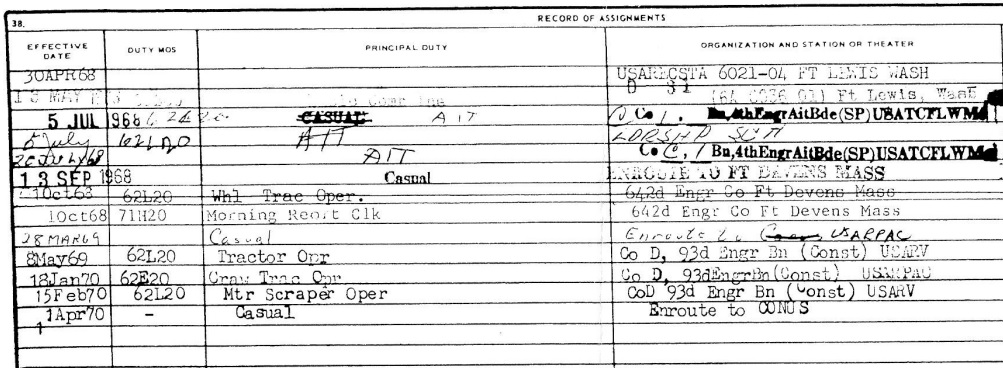 38. RECORD OF ASSIGNMENTS
EFFECTIVE DATE DUTY MOS PRINCIPAL DUTY ORGANIZATION AND STATION OR THEATER
30APR68 USARECSTA 6021-04 FT LEWIS WASH
13 MAY Ft Lewis, Wash
5 JUL 1968 CASUAL AIT Co Bn, 4thEngrAitBde(SP)USATCFLWMo
5 July AIT LDRSHP SCH
20 July 68 AIT Co C, 1 Bn, 4thEngrAitBde(SP)USATCFLWMo
13 SEP 1968 Casual ENROUTE TO FT DEVENS MASS
1Oct68 62L20 Whl Trac Oper. 642d Engr Co Ft Devens Mass
1Oct68 71H20 Morning Reort Clk 642d Engr Co Ft Devens Mass
28MAR69 Casual Enroute to USARPAC
8May69 62L20 Tractor Opr Co D, 93d Engr Bn (Const) USARV
18Jan70 62E20 Trac Opr Co D, 93dEngrBn(Const) USARPAC
15Feb70 62L20 Mtr Scraper Oper CoD 93d Engr Bn (Const) USARV
1Apr70 - Casual Enroute to CONUS
1